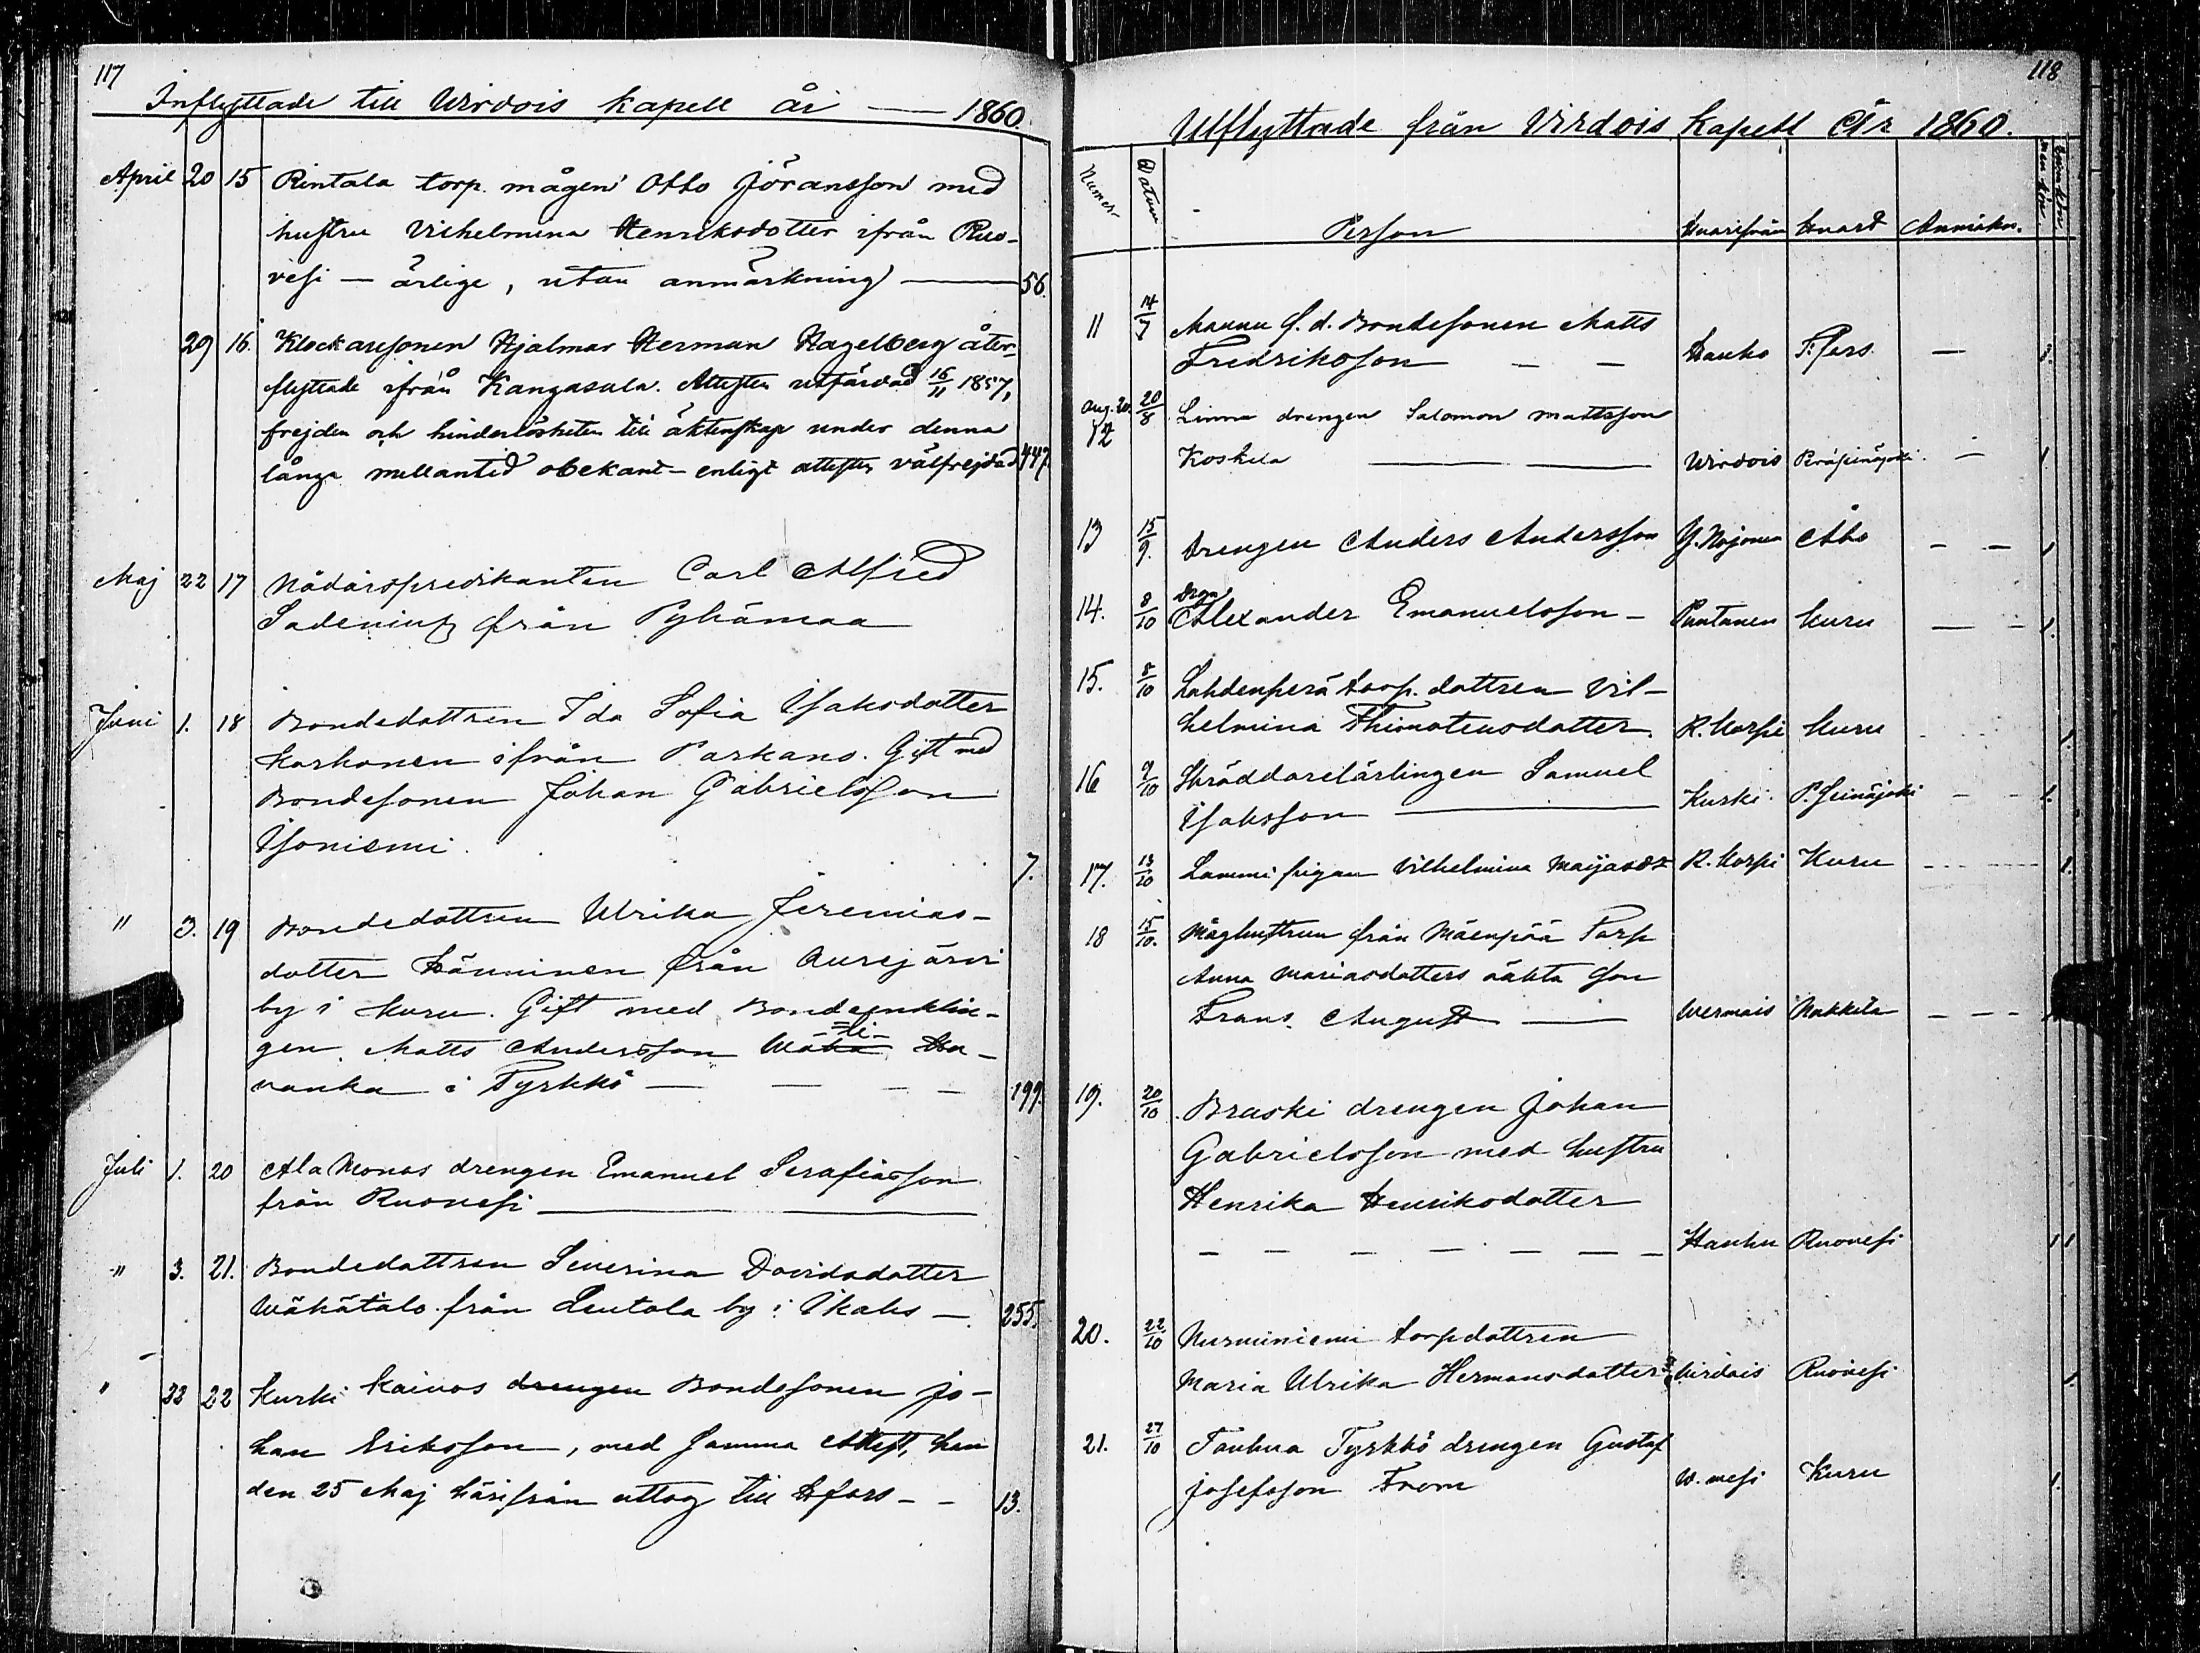 117
Inflyttade till Wirdois kapell år — 1860.
April 20 15 Rintala torp. mågen Otto Jöransson med
hustru Vilhelmina Henriksdotter ifrån Ruo-
vesi — ärlige, utan anmärkning — 56.
29 16. Klockaresonen Hjalmar Herman Hagelberg åter-
flyttade ifrån Kangasala. Attesten utfärdad 16/11 1857,
frejden och hinderlösheten till äktenskap under denna
långa mellantid obekant — enligt attesten välfrejdad 447
Maj 22 17 Nådårspredikanten Carl Alfred
Sadenius från Pyhämaa
Juni 1. 18 Bondedottren Ida Sofia Isaksdotter
Korhonen ifrån Parkano. Gift med
Bondesonen Johan Gabrielsson
Isoniemi. 7.
" 3. 19 Bondedottren Ulrika Jeremias-
dotter Hänninen från Aurejärvi
by i Kuru. Gift med Bonde
gen Matts Andersson
vanka i Tyrkkö — — — 199.
Juli 1. 20 Ala Monos drengen Emanuel Serafiasson
från Ruovesi —
" 3. 21. Bondedottren Severina Davidsdotter
Wähätalo från Leutola by i Ikalis — 255.
" 22 22 Kurki Kaivos drengen Bondesonen Jo-
han Eriksson, med samma Attest, han
den 25 Maj härifrån uttog till Hfors — — 13.
118
Utflyttade från Virdois Kapell År 1860.
Numer Datum Person Hvarifrån Hvart Anmärkn.
11 14/7 Maunu f. d. Bondesonen Matts
Fredriksson — — Hauho T:fors. —
Aug. 20. 20/8 Linna drengen Salomon Mattsson
12
Koskela — Wirdois Peräseinäjoki — 1.
13 15/9. Drengen Anders Andersson Y. Nojonen Åbo — — 1
14. 8/10 Dren Alexander Emanuelsson — Puntanen Kuru — — 1.
15. 8/10 Lahdenperä torp. dottren Vil-
helmina Thimoteusdotter. R. Korpi Kuru 1.
16 9/10 Skräddarelärlingen Samuel
Isaksson — Kurki P. Seinäjoki — — 1.
17. 13/10 Lammi pigan Vilhelmina Maijasdr R. Korpi Kuru 1.
18 15/10. Måghustrun från Mäenpää Torp
Anna Mariasdotters oäkta son
Frans August — Wermais Nakkila — — —
19. 20/10 Braski drengen Johan
Gabrielsson med hustru
Henrika Henriksdotter
— — — — — — — Hauhu Ruovesi 1 1
20. 22/10 Nurminiemi torpdottren
Maria Ulrika Hermansdotter Wirdois Ruovesi 1.
21. 27/10 Tauhua Tyrkkö drengen Gustaf
Josefsson From W. vesi Kuru 1.